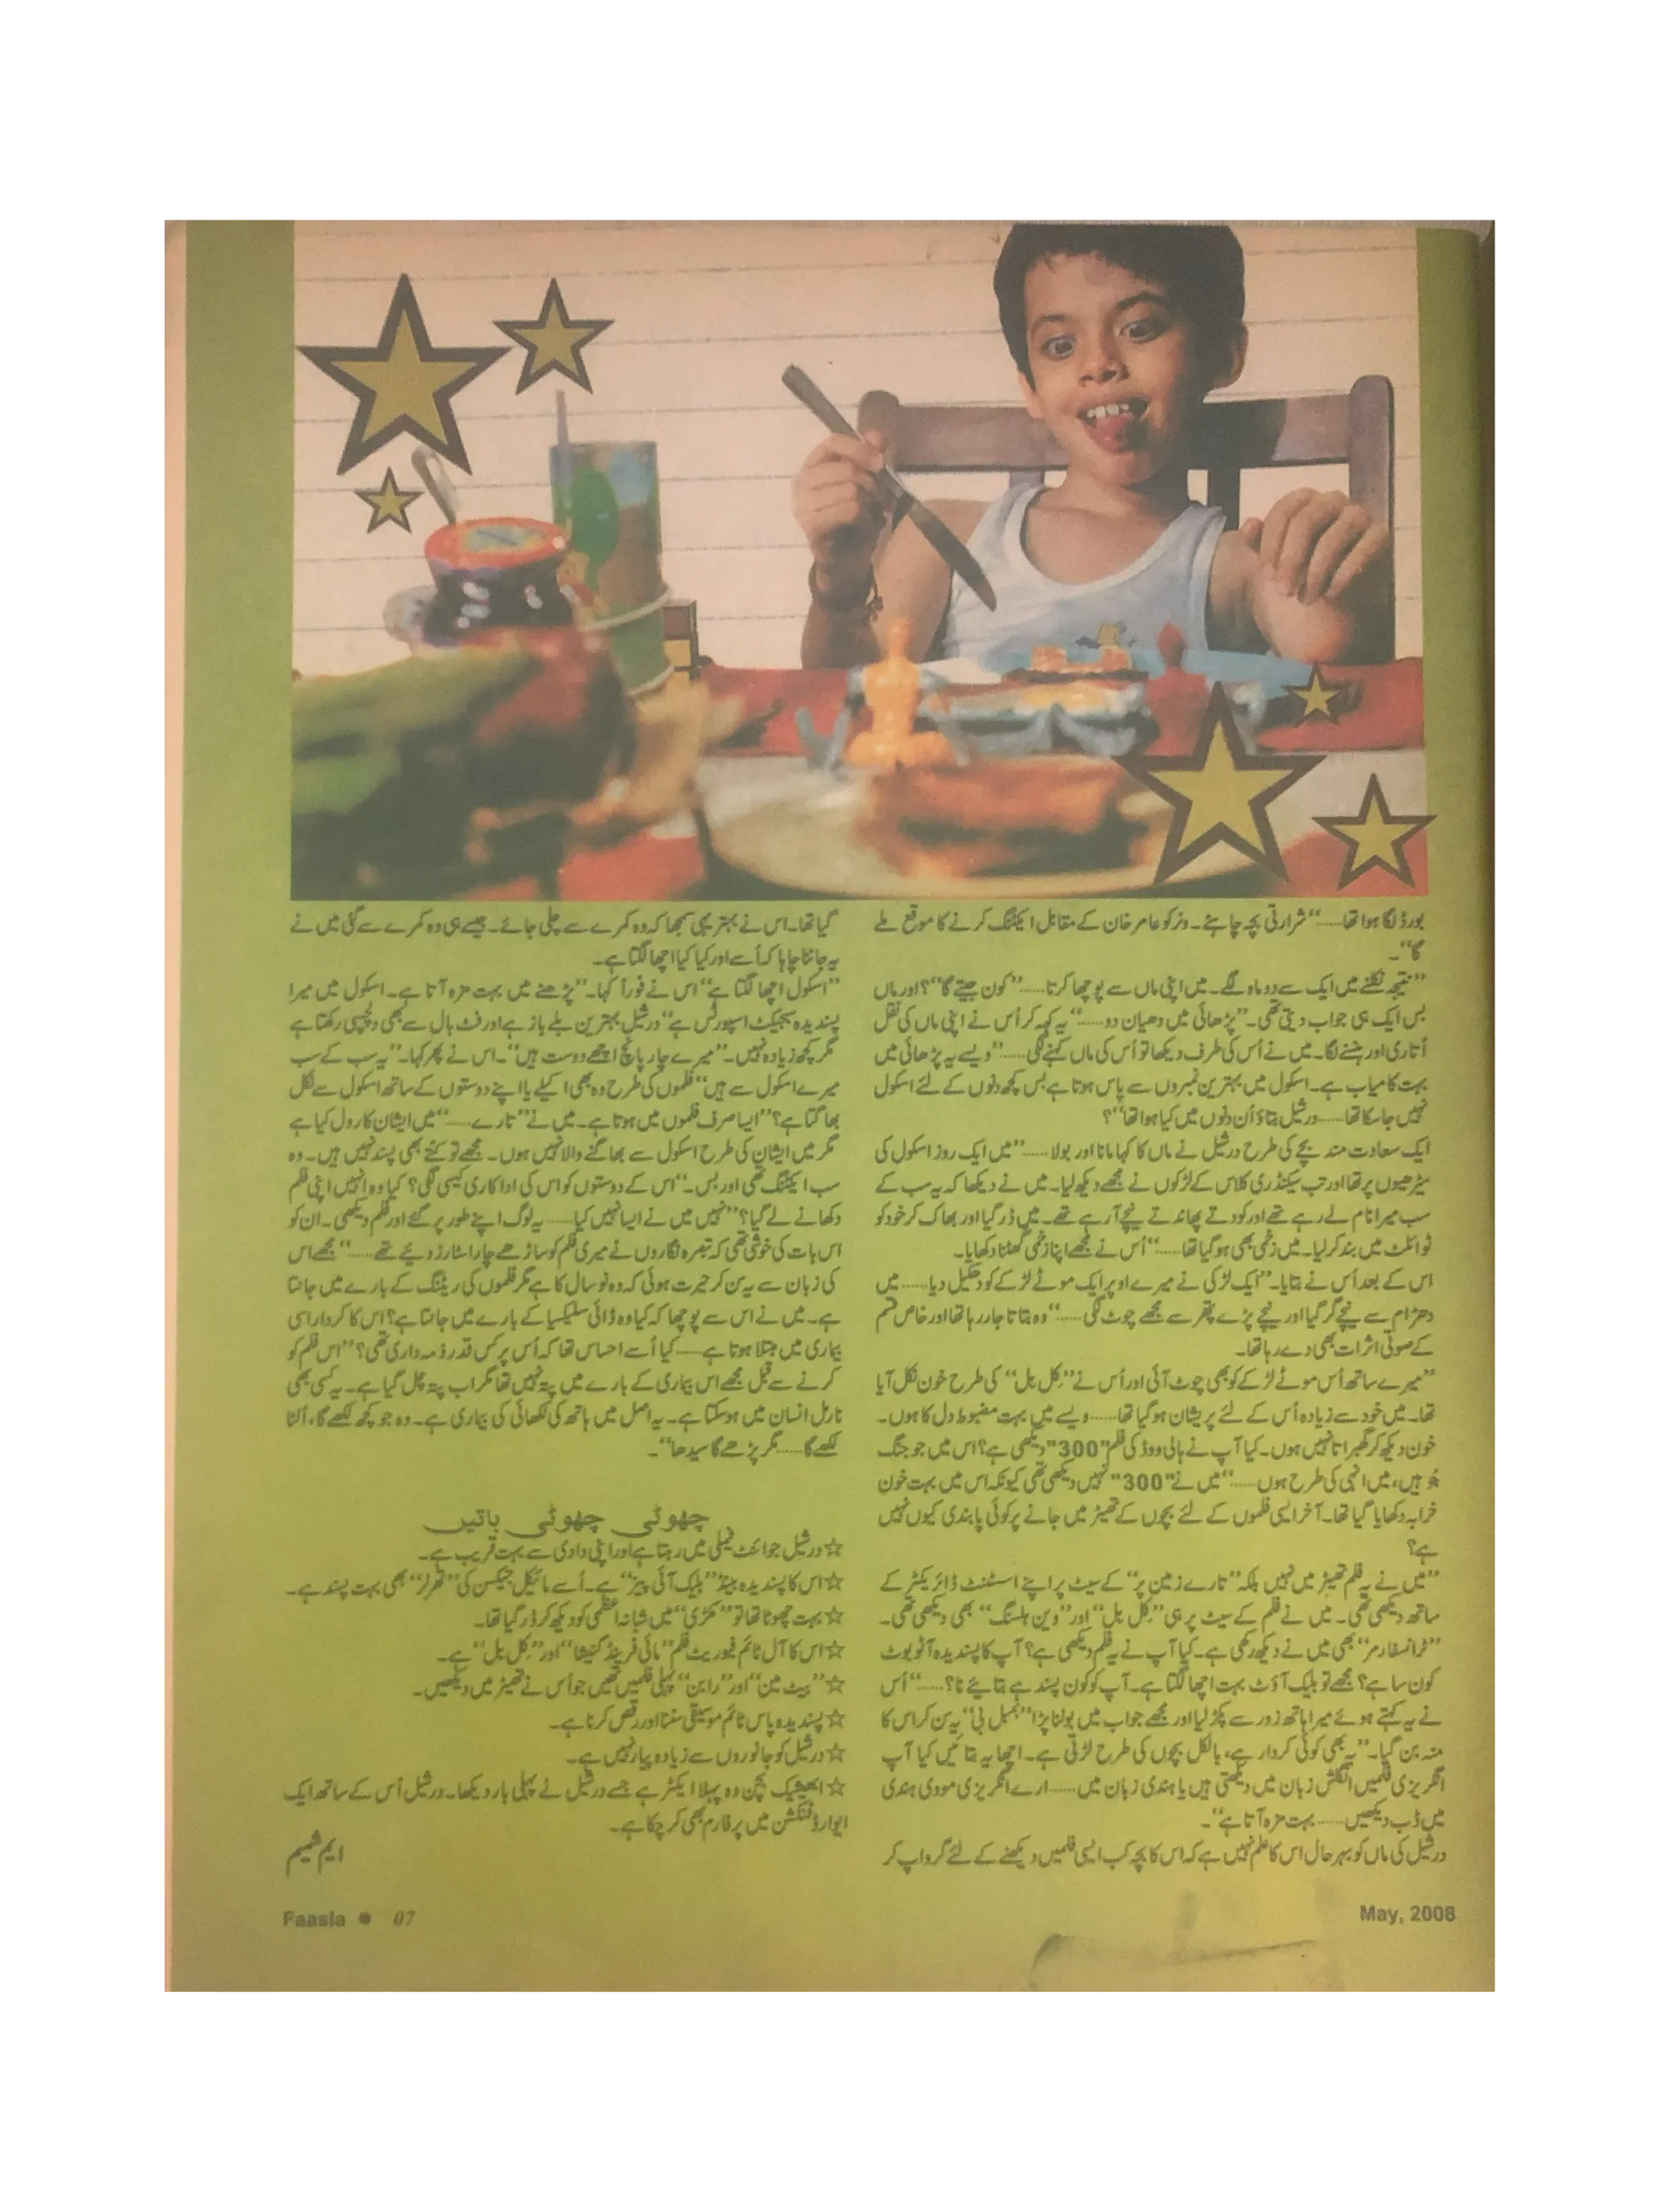 بورڈ لگا ہوا تھا......‘‘شرارتی بچہ چاہئے۔ ونر کو عامر خان کے مقابل ایکٹنگ کرنے کا موقع ملے
گا’’۔
’’نتیجہ نکلنے میں ایک سے دو ماہ لگے۔ میں اپنی ماں سے پوچھا کرتا......’’کون جیتے گا‘‘؟ اور ماں
بس ایک ہی جواب دیتی تھی۔ ’’پڑھائی میں دھیان دو......‘‘ یہ کہہ کر اُس نے اپنی ماں کی نقل
اُتاری اور ہنسنے لگا۔ میں نے اُس کی طرف دیکھا تو اُس کی ماں کہنے لگی......’’ویسے یہ پڑھائی میں
بہت کامیاب ہے۔ اسکول میں بہترین نمبروں سے پاس ہوتا ہے بس کچھ دنوں کے لئے اسکول
نہیں جا سکا تھا......درشیل بتاؤ اُن دنوں میں کیا ہوا تھا‘‘؟
ایک سعادت مند بچے کی طرح درشیل نے ماں کا کہا مانا اور بولا......’’میں ایک روز اسکول کی
سیڑھیوں پر تھا اور تب سیکنڈری کلاس کے لڑکوں نے مجھے دیکھ لیا۔ میں نے دیکھا کہ یہ سب کے
سب میرا نام لے رہے تھے اور کودتے پھاندتے نیچے آ رہے تھے۔ میں ڈر گیا اور بھاگ کر خود کو
ٹوائلٹ میں بند کر لیا۔ میں زخمی بھی ہو گیا تھا......‘‘ اُس نے مجھے اپنا زخمی گھٹنا دکھایا۔
اس کے بعد اُس نے بتایا۔ ’’ایک لڑکی نے میرے اوپر ایک موٹے لڑکے کو دھکیل دیا......میں
دھڑام سے نیچے گر گیا اور نیچے پڑے پتھر سے مجھے چوٹ لگی......‘‘ وہ بتاتا جا رہا تھا اور خاص قسم
کے صوتی اثرات بھی دے رہا تھا۔
’’میرے ساتھ اُس موٹے لڑکے کو بھی چوٹ آئی اور اُس نے ’’کِل بل‘‘ کی طرح خون نکل آیا
تھا۔ میں خود سے زیادہ اُس کے لئے پریشان ہو گیا تھا......ویسے میں بہت مضبوط دل کا ہوں۔
خون دیکھ کر گھبراتا نہیں ہوں۔ کیا آپ نے ہالی ووڈ کی فلم "300" دیکھی ہے؟ اس میں جو جنگ
جُو ہیں، میں انہی کی طرح ہوں......‘‘ میں نے "300" نہیں دیکھی تھی کیونکہ اس میں بہت خون
خرابہ دکھایا گیا تھا۔ آخر ایسی فلموں کے لئے بچوں کے تھیٹر میں جانے پر کوئی پابندی کیوں نہیں
ہے؟
’’میں نے یہ فلم تھیٹر میں نہیں بلکہ ’’تارے زمین پر‘‘ کے سیٹ پر اپنے اسسٹنٹ ڈائریکٹر کے
ساتھ دیکھی تھی۔ میں نے فلم کے سیٹ پر ہی ’’کِل بل‘‘ اور ’’وین ہلسنگ‘‘ بھی دیکھی تھی۔
’’ٹرانسفارمر‘‘ بھی میں نے دیکھ رکھی ہے۔ کیا آپ نے یہ فلم دیکھی ہے؟ آپ کا پسندیدہ آٹوبوٹ
کون سا ہے؟ مجھے تو بلیک آؤٹ بہت اچھا لگتا ہے۔ آپ کو کون پسند ہے بتایئے نا؟......‘‘ اُس
نے یہ کہتے ہوئے میرا ہاتھ زور سے پکڑ لیا اور مجھے جواب میں بولنا پڑا ’’بمبل بی‘‘ یہ سن کر اس کا
منہ بن گیا۔ ’’یہ بھی کوئی کردار ہے، بالکل بچوں کی طرح لڑتی ہے۔ اچھا یہ بتائیں کیا آپ
انگریزی فلمیں انگلش زبان میں دیکھتی ہیں یا ہندی زبان میں......ارے انگریزی مووی ہندی
میں ڈب دیکھیں......بہت مزہ آتا ہے‘‘۔
درشیل کی ماں کو بہرحال اس کا علم نہیں ہے کہ اس کا بچہ کب ایسی فلمیں دیکھنے کے لئے گرو اپ کر
گیا تھا۔ اس نے بہتر یہی سمجھا کہ وہ کمرے سے چلی جائے۔ جیسے ہی وہ کمرے سے گئی میں نے
یہ جاننا چاہا کہ اُسے اور کیا کیا اچھا لگتا ہے۔
’’اسکول اچھا لگتا ہے‘‘ اس نے فوراً کہا۔ ’’پڑھنے میں بہت مزہ آتا ہے۔ اسکول میں میرا
پسندیدہ سبجیکٹ اسپورٹس ہے‘‘ درشیل بہترین بلے باز ہے اور فٹ بال سے بھی دلچسپی رکھتا ہے
مگر کچھ زیادہ نہیں۔ ’’میرے چار پانچ اچھے دوست ہیں‘‘۔ اس نے پھر کہا۔ ’’یہ سب کے سب
میرے اسکول سے ہیں‘‘ فلموں کی طرح وہ بھی اکیلے یا اپنے دوستوں کے ساتھ اسکول سے نکل
بھاگتا ہے؟ ’’ایسا صرف فلموں میں ہوتا ہے۔ میں نے ’’تارے......‘‘ میں ایشان کا رول کیا ہے
مگر میں ایشان کی طرح اسکول سے بھاگنے والا نہیں ہوں۔ مجھے تو کتے بھی پسند نہیں ہیں۔ وہ
سب ایکٹنگ تھی اور بس۔‘‘ اس کے دوستوں کو اس کی اداکاری کیسی لگی؟ کیا وہ انہیں اپنی فلم
دکھانے لے گیا؟ ’’نہیں میں نے ایسا نہیں کیا......یہ لوگ اپنے طور پر گئے اور فلم دیکھی۔ ان کو
اس بات کی خوشی تھی کہ تبصرہ نگاروں نے میری فلم کو ساڑھے چار اسٹارز دیئے تھے......‘‘ مجھے اس
کی زبان سے یہ سن کر حیرت ہوئی کہ وہ نو سال کا ہے مگر فلموں کی ریٹنگ کے بارے میں جانتا
ہے۔ میں نے اس سے پوچھا کہ کیا وہ ڈائی سلیکسیا کے بارے میں جانتا ہے؟ اس کا کردار اسی
بیماری میں مبتلا ہوتا ہے......کیا اُسے احساس تھا کہ اُس پر کس قدر ذمہ داری تھی؟ ’’اس فلم کو
کرنے سے قبل مجھے اس بیماری کے بارے میں پتہ نہیں تھا مگر اب پتہ چل گیا ہے۔ یہ کسی بھی
نارمل انسان میں ہو سکتا ہے۔ یہ اصل میں ہاتھ کی لکھائی کی بیماری ہے۔ وہ جو کچھ لکھے گا، اُلٹا
لکھے گا......مگر پڑھے گا سیدھا‘‘۔
چھوٹی چھوٹی باتیں
☆ درشیل جوائنٹ فیملی میں رہتا ہے اور اپنی دادی سے بہت قریب ہے۔
☆ اس کا پسندیدہ بینڈ ’’بلیک آئی پیز‘‘ ہے۔ اُسے مائیکل جیکسن کی ’’تھرلر‘‘ بھی بہت پسند ہے۔
☆ بہت چھوٹا تھا تو ’’مکڑی‘‘ میں شبانہ اعظمی کو دیکھ کر ڈر گیا تھا۔
☆ اس کا آل ٹائم فیوریٹ فلم ’’مائی فرینڈ گنیشا‘‘ اور ’’کِل بل‘‘ ہے۔
☆ ’’بیٹ مین‘‘ اور ’’رابن‘‘ پہلی فلمیں تھیں جو اُس نے تھیٹر میں دیکھیں۔
☆ پسندیدہ پاس ٹائم موسیقی سننا اور رقص کرنا ہے۔
☆ درشیل کو جانوروں سے زیادہ پیار نہیں ہے۔
☆ ابھیشیک بچن وہ پہلا ایکٹر ہے جسے درشیل نے پہلی بار دیکھا۔ درشیل اُس کے ساتھ ایک
ایوارڈ فنکشن میں پرفارم بھی کر چکا ہے۔
ایم شمیم
Faasla ● 07
May, 2008